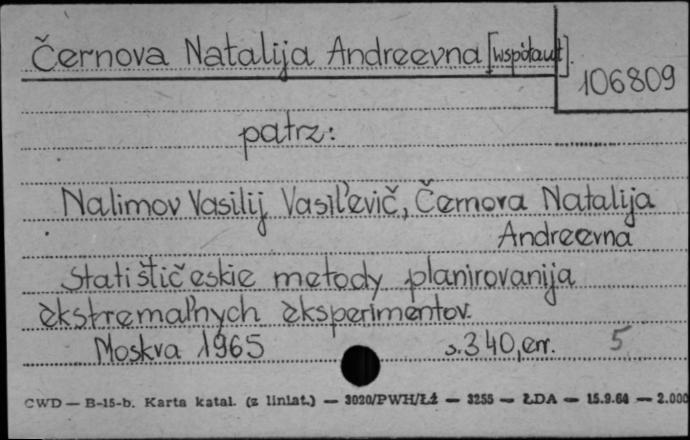 Černova Natalija Andreevna [współaut].
106809
patrz:
Nalimov Vasilij Vasil'evič, Černova Natalija
Andreevna
Statističeskie metody planirovanija
èkstremal'nych èksperimentov.
Moskva 1965 s. 340, err. 5
CWD — B-15-b. Karta katal. (z liniat.) — 3020/PWH/Łź — 3255 — ŁDA — 15.9.64 — 2.000